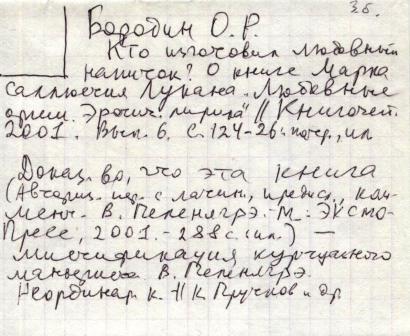 36.
Бородин О. Р.
Кто изготовил любовный
напиток? О книге Марка
Саллюстия Лукана. Любовные
оргии. Эротич. лирика" // Книгочет.
2001. Вып. 6. С. 124-26: портр., ил
Доказ-во, что эта книга
(Авториз. пер. с латин., предисл., ком-
мент. В. Пепенягрэ. - М.: ЭКСМО-
Пресс, 2001. - 288 с. (ил.) —
мистификация
В. Пепенягрэ.
Неординар. к. Н К Пручков и др